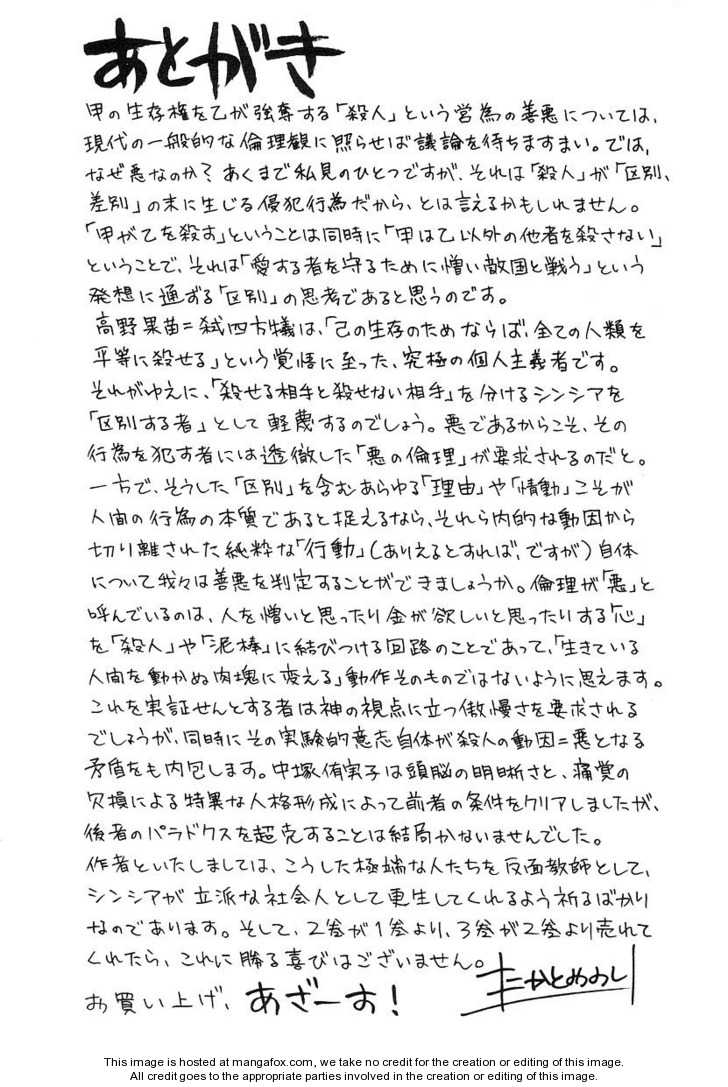 あとがき
甲の生存権を乙が強奪する「殺人」という営為の善悪については、
現代の一般的な倫理観に照らせば議論を待ちますまい。では、
なぜ悪なのか？あくまで私見のひとつですが、それは「殺人」が「区別、
差別」の末に生じる侵犯行為だから、とは言えるかもしれません。
「甲が乙を殺す」ということは同時に「甲は乙以外の他者を殺さない」
ということで、それは「愛する者を守るために憎い敵国と戦う」という
発想に通ずる「区別」の思考であると思うのです。
高野果苗＝弑四方犠は、「己の生存のためならば、全ての人類を
平等に殺せる」という覚悟に至った、究極の個人主義者です。
それがゆえに、「殺せる相手と殺せない相手」を分けるシンシアを
「区別する者」として軽蔑するのでしょう。悪であるからこそ、その
行為を犯す者には透徹した「悪の倫理」が要求されるのだと。
一方で、そうした「区別」を含むあらゆる「理由」や「情動」こそが
人間の行為の本質であると捉えるなら、それら内的な動因から
切り離された純粋な「行動」（ありえるとすれば、ですが）自体
について我々は善悪を判定することができましょうか。倫理が「悪」と
呼んでいるのは、人を憎いと思ったり金が欲しいと思ったりする「心」
を「殺人」や「泥棒」に結びつける回路のことであって、「生きている
人間を動かぬ肉塊に変える」動作そのものではないように思えます。
これを実証せんとする者は神の視点に立つ傲慢さを要求される
でしょうが、同時にその実験的意志自体が殺人の動因＝悪となる
矛盾をも内包します。中塚侑実子は頭脳の明晰さと、痛覚の
欠損による特異な人格形成によって前者の条件をクリアしましたが、
後者のパラドクスを超克することは結局かないませんでした。
作者といたしましては、こうした極端な人たちを反面教師として、
シンシアが立派な社会人として更生してくれるよう祈るばかり
なのであります。そして、2巻が1巻より、3巻が2巻より売れて
くれたら、これに勝る喜びはございません。
お買い上げ、あざーす！
This image is hosted at mangafox.com, we take no credit for the creation or editing of this image.
All credit goes to the appropriate parties involved in the creation or editing of this image.